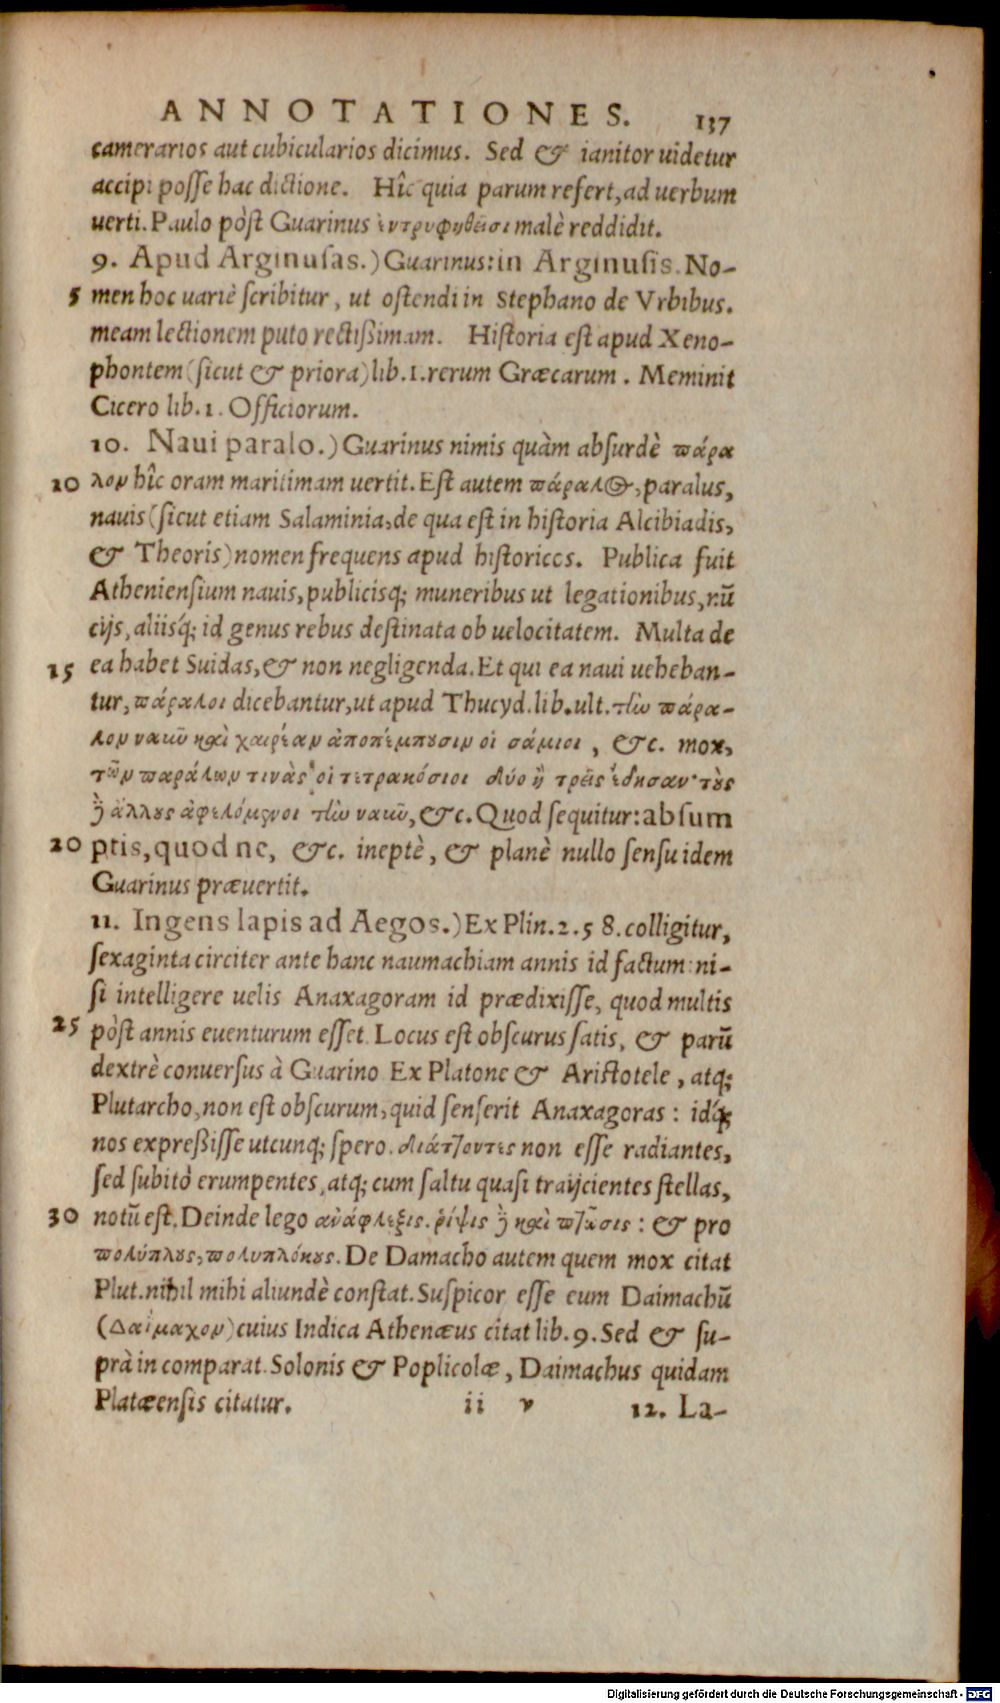 ANNOTATIONES. 137
camerarios aut cubicularios dicimus. Sed & ianitor uidetur
accipi posse hac dictione. Hîc quia parum refert, ad uerbum
uerti. Paulo pòst Guarinus ἐντρυφηθεῖσι malè reddidit.
9. Apud Arginusas.) Guarinus: in Arginusis. No-
5 men hoc uariè scribitur, ut ostendi in Stephano de Vrbibus.
meam lectionem puto rectißimam. Historia est apud Xeno-
phontem (sicut & priora) lib. 1. rerum Græcarum. Meminit
Cicero lib. 1. Officiorum.
10. Naui paralo.) Guarinus nimis quàm absurdè πάρα
10 λον hîc oram maritimam uertit. Est autem πάραλος, paralus,
nauis (sicut etiam Salaminia, de qua est in historia Alcibiadis,
& Theoris) nomen frequens apud historicos. Publica fuit
Atheniensium nauis, publicisq; muneribus ut legationibus, nũ
cijs, aliisq́; id genus rebus destinata ob uelocitatem. Multa de
15 ea habet Suidas, & non negligenda. Et qui ea naui ueheban-
tur, πάραλοι dicebantur, ut apud Thucyd. lib. ult. τὴν πάρα-
λον ναῦν καὶ χαιρέαν ἀποπέμπουσιν οἱ σάμιοι, &c. mox,
τῶν παράλων τινὰς οἱ τετρακόσιοι δύο ἢ τρεῖς ἔδησαν· τοὺς
δὲ ἄλλους ἀφελόμενοι τὴν ναῦν, &c. Quod sequitur: absum
20 ptis, quod ne, &c. ineptè, & planè nullo sensu idem
Guarinus præuertit.
11. Ingens lapis ad Aegos.) Ex Plin. 2. 58. colligitur,
sexaginta circiter ante hanc naumachiam annis id factum: ni-
si intelligere uelis Anaxagoram id prædixisse, quod multis
25 pòst annis euenturum esset. Locus est obscurus satis, & parũ
dextrè conuersus à Guarino. Ex Platone & Aristotele, atq;
Plutarcho, non est obscurum, quid senserit Anaxagoras: idq́;
nos expreßisse utcunq; spero. διάττοντες non esse radiantes,
sed subitò erumpentes, atq; cum saltu quasi traijcientes stellas,
30 notũ est. Deinde lego ἀνάφλεξις. ῥίψις δὲ καὶ πτῶσις: & pro
πολύπλους, πολυπλόκους. De Damacho autem quem mox citat
Plut. nihil mihi aliundè constat. Suspicor esse eum Daimachũ
(Δαΐμαχον) cuius Indica Athenæus citat lib. 9. Sed & su-
prà in comparat. Solonis & Poplicolæ, Daimachus quidam
Platæensis citatur. ii v 12. La-
Digitalisierung gefördert durch die Deutsche Forschungsgemeinschaft - DFG